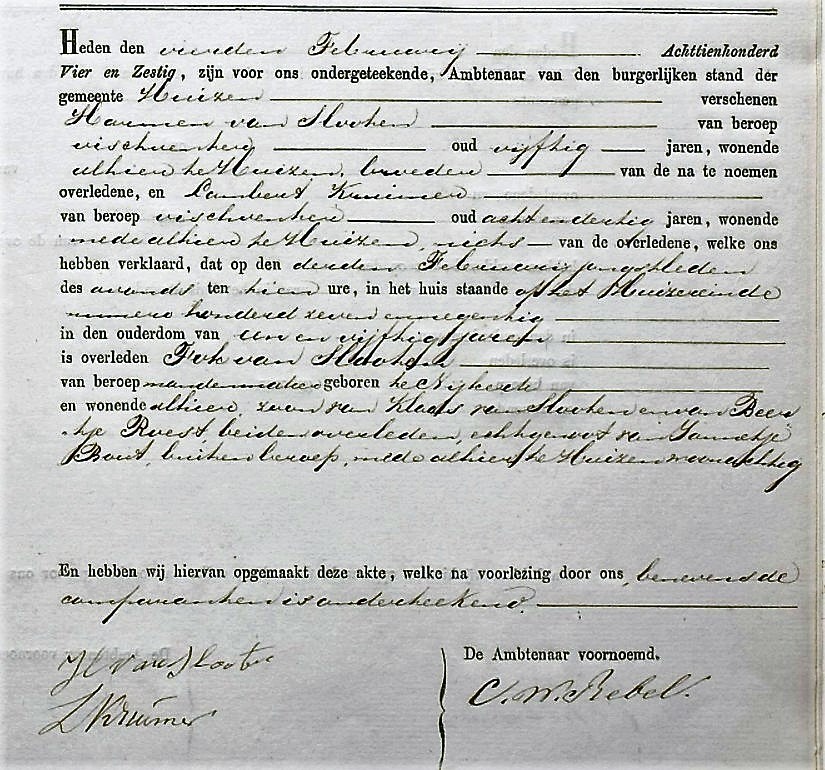 Heden den vierden Februarij Achttienhonderd
Vier en Zestig, zijn voor ons ondergeteekende, Ambtenaar van den burgerlijken stand der
gemeente Huizen verschenen
Harmen van Slooten van beroep
visventer oud vijftig jaren, wonende
alhier te Huizen, broeder van de na te noemen
overledene, en Lambert Kruimer
van beroep vischventer oud achtendertig jaren, wonende
mede alhier te Huizen, niets van de overledene, welke ons
hebben verklaard, dat op den derden Februarij jongstleden
des avonds ten tien ure, in het huis staande op het Huizereinde
numero honderd zeven en negentig
in den ouderdom van een en vijftig jaren
is overleden Fok van Slooten
van beroep mandenmaker geboren te Nijkerk
en wonende alhier, zoon van Klaas van Slooten en van Beer
tje Roest, beiden overleden, echtgenoot van Jannetje
Bout, buiten beroep, mede alhier te Huizen woonachtig
En hebben wij hiervan opgemaakt deze akte, welke na voorlezing door ons, benevens de
comparanten is onderteekend.
H van Slooten
L Kruimer
De Ambtenaar voornoemd.
C. W. Rebel.